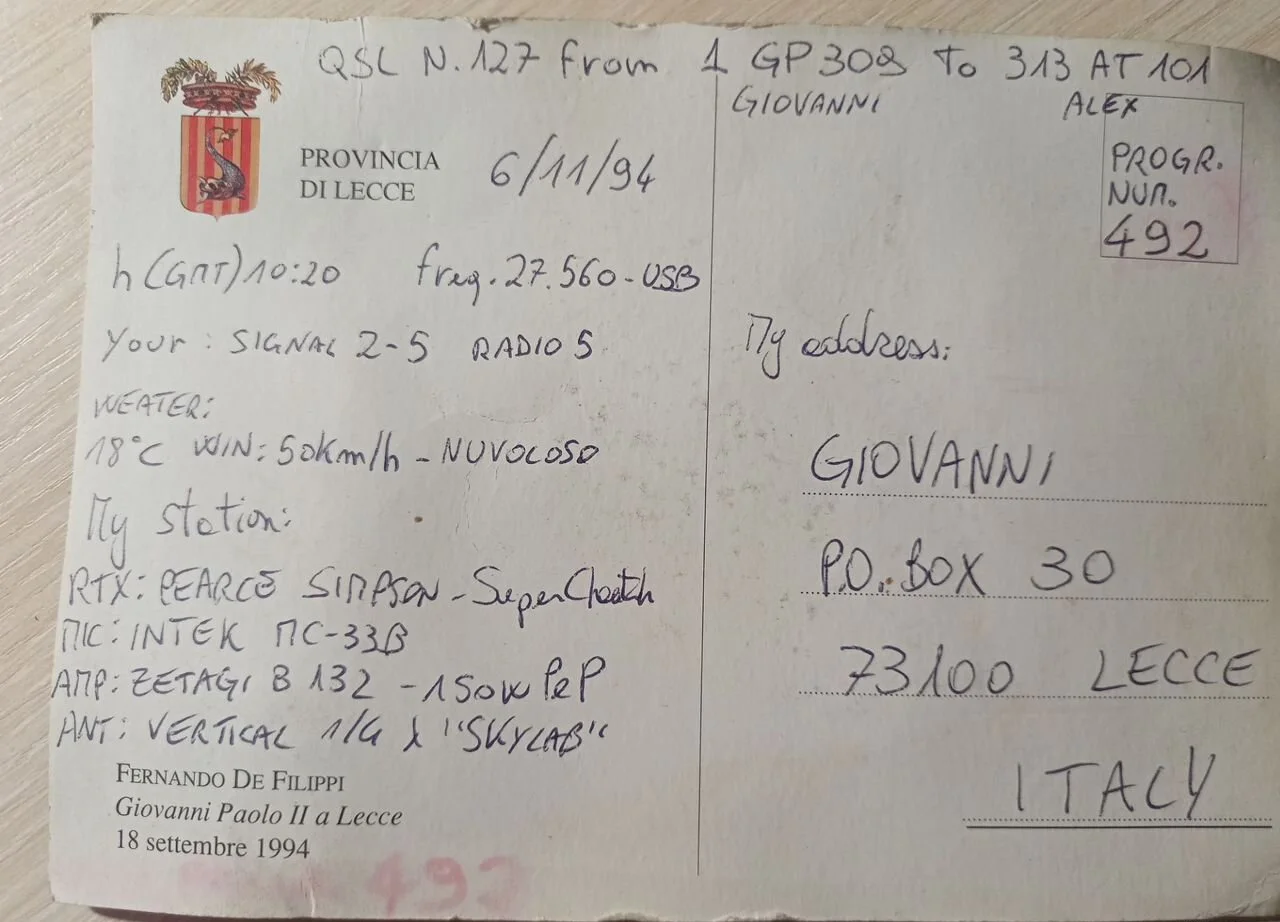 QSL N. 127 from 1 GP 309 To 313 AT 101
GIOVANNI ALEX
PROVINCIA
DI LECCE
6/11/94
PROGR.
NUM.
492
h (GMT) 10:20 freq. 27.560 - USB
Your : SIGNAL 2-5 RADIO 5
WEATER:
18°C WIN: 50Km/h - NUVOLOSO
My station:
RTX: PEARCE SIMPSON - Super Cheetah
MIC: INTEK MC-33B
AMP: ZETAGI B 132 - 150W PeP
ANT: VERTICAL 1/4 λ "SKYLAB"
FERNANDO DE FILIPPI
Giovanni Paolo II a Lecce
18 settembre 1994
492
My address:
GIOVANNI
P.O. BOX 30
73100 LECCE
ITALY